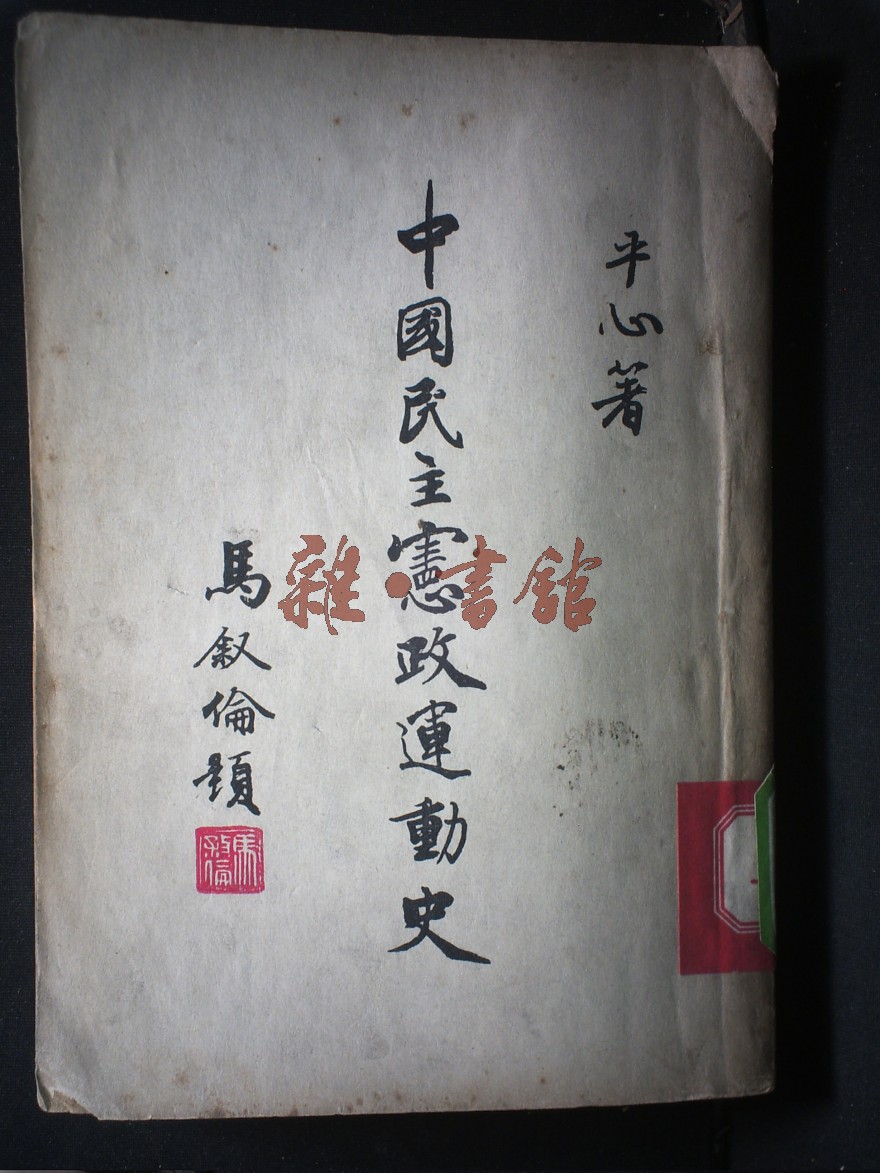 平心著
中國民主憲政運動史
馬叙倫題
雜·書館